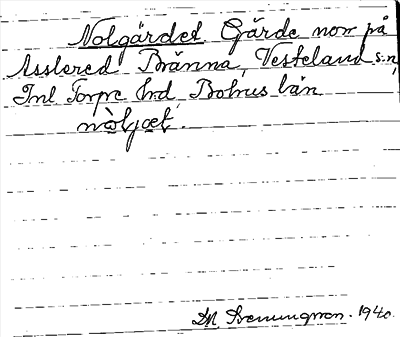 Nolgärdet Gärde norr på
Asslered Bränna, Vesteland s:n,
Inl Torpe hrd, Bohus län
nòljæt.
1940.